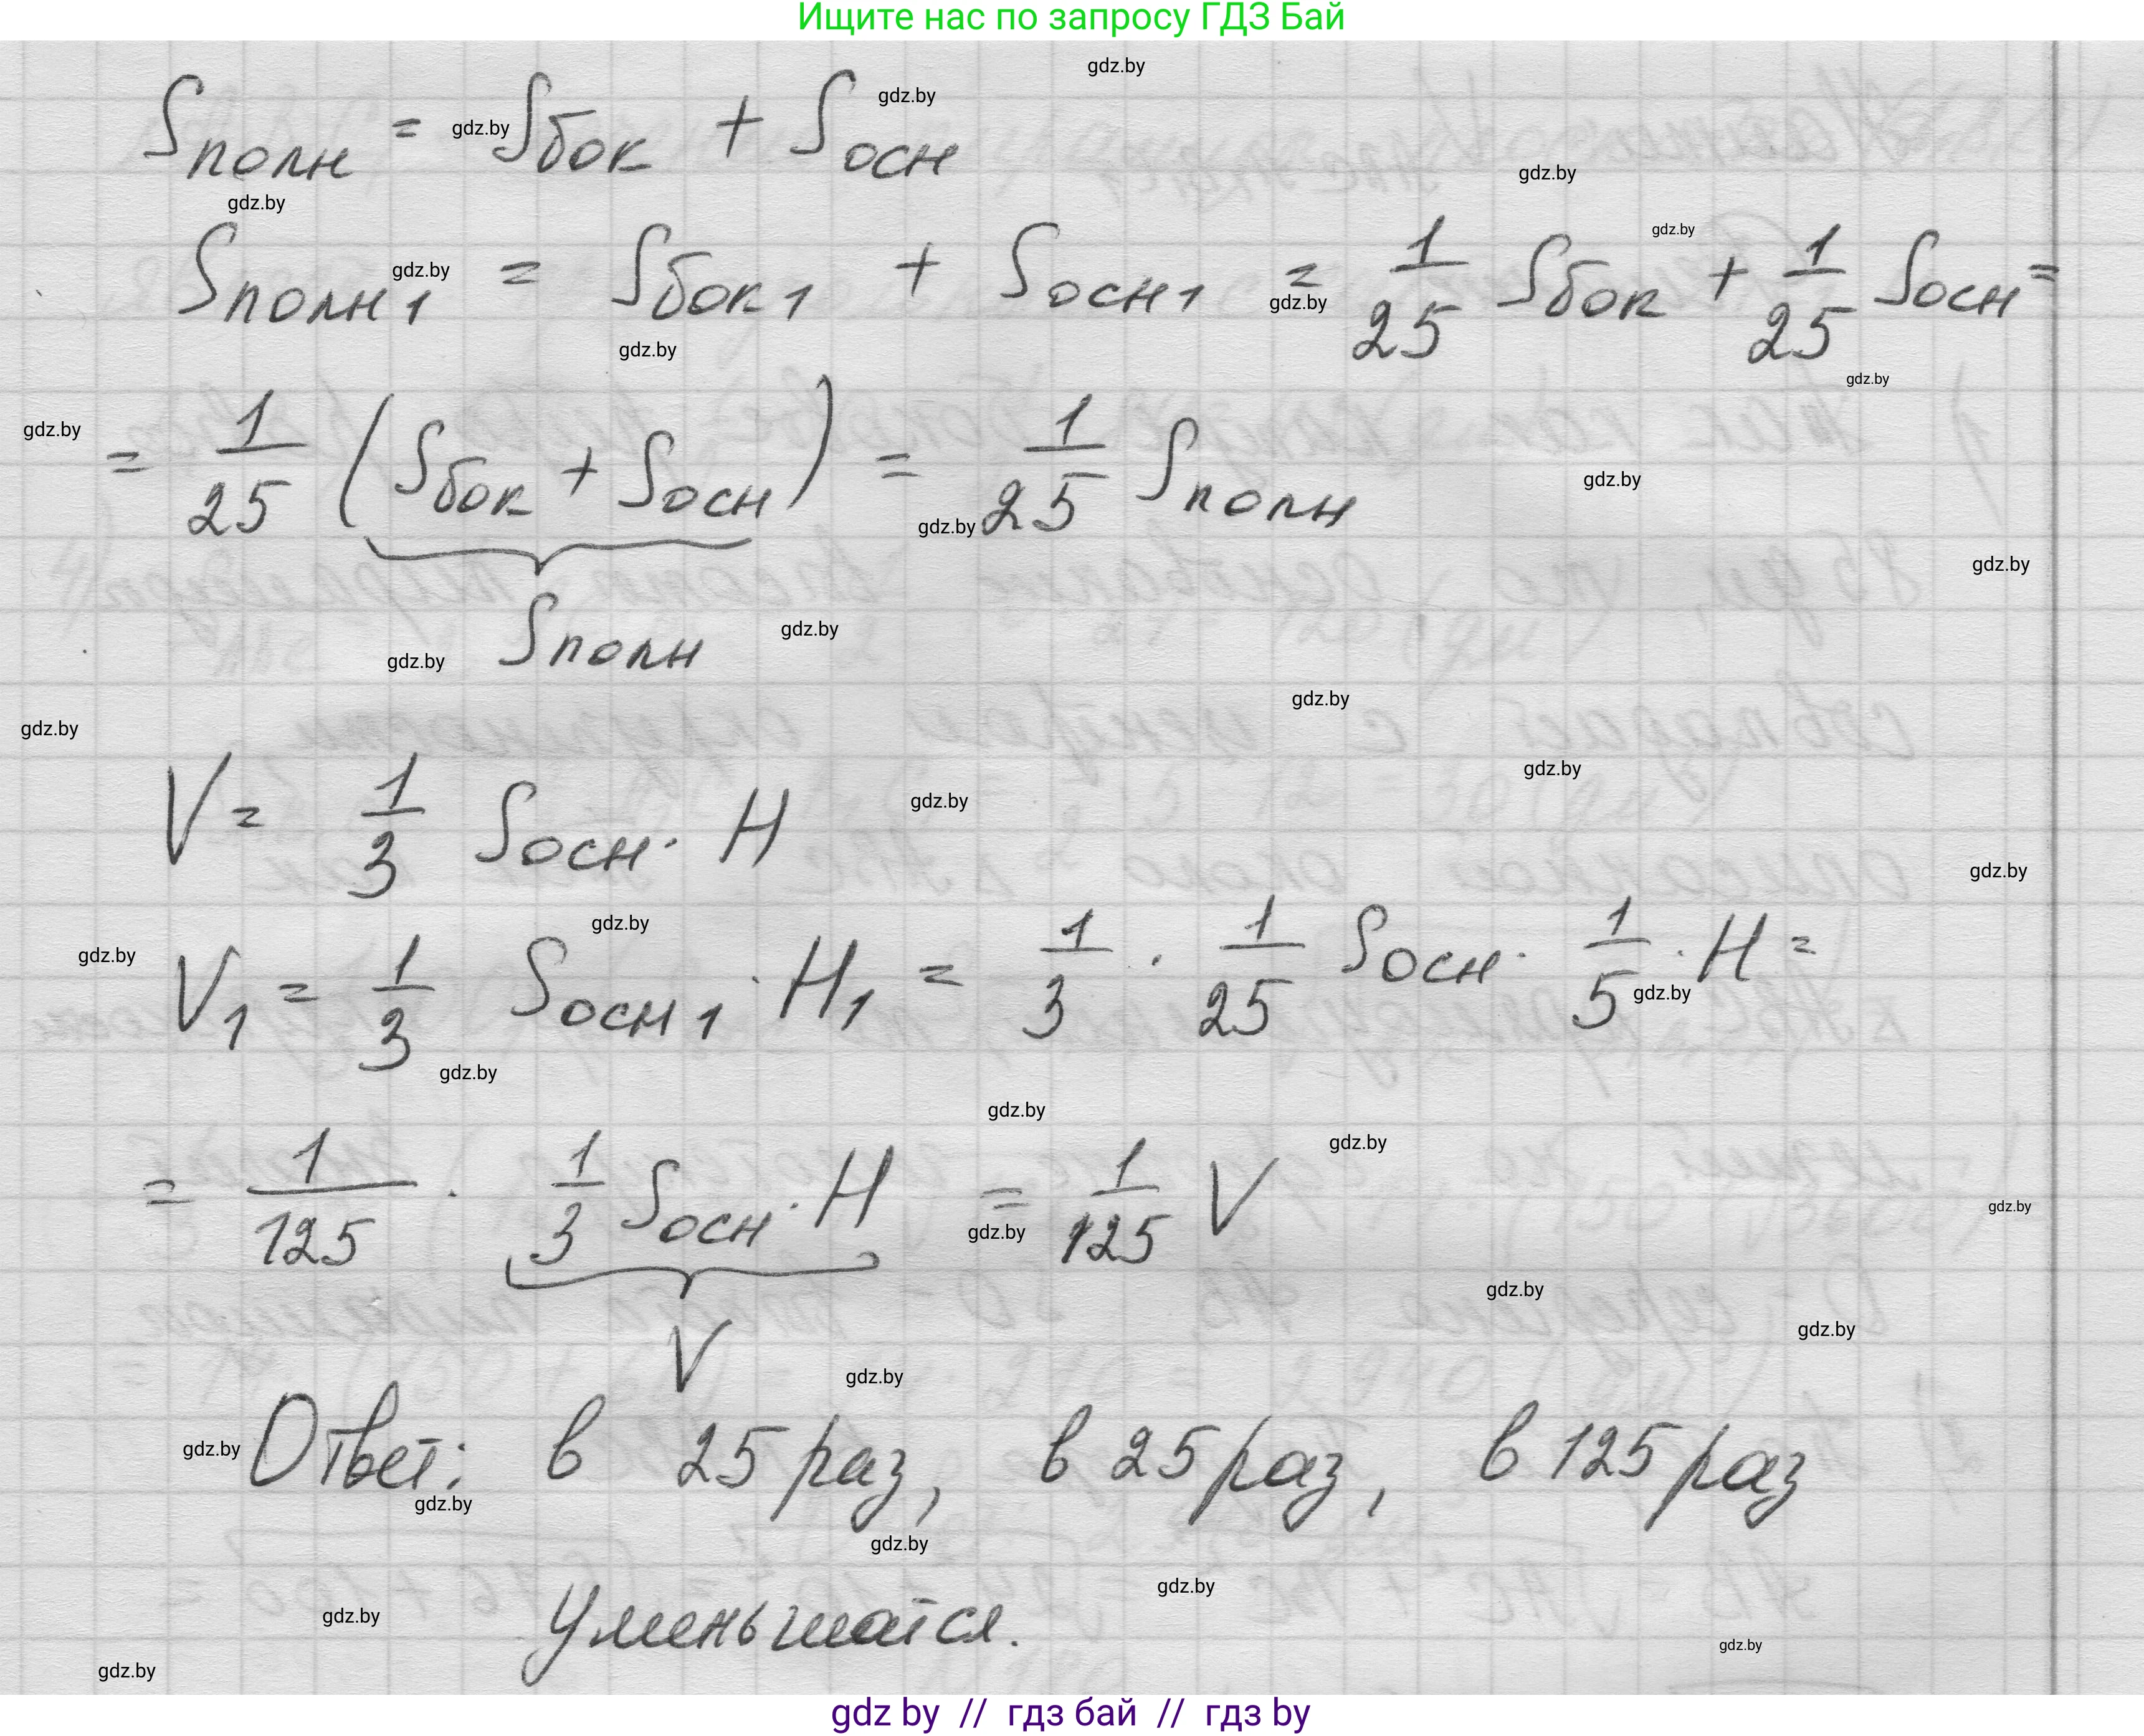 Ищите нас по запросу ГДЗ Бай
Sполн = Sбок + Sосн
Sполн1 = Sбок1 + Sосн1 = 1/25 Sбок + 1/25 Sосн =
= 1/25 (Sбок + Sосн) = 1/25 Sполн
Sполн
V = 1/3 Sосн · H
V1 = 1/3 Sосн1 · H1 = 1/3 · 1/25 Sосн · 1/5 · H =
= 1/125 · 1/3 Sосн · H = 1/125 V
V
Ответ: в 25 раз, в 25 раз, в 125 раз
уменьшатся.
gdz by // гдз бай // гдз by